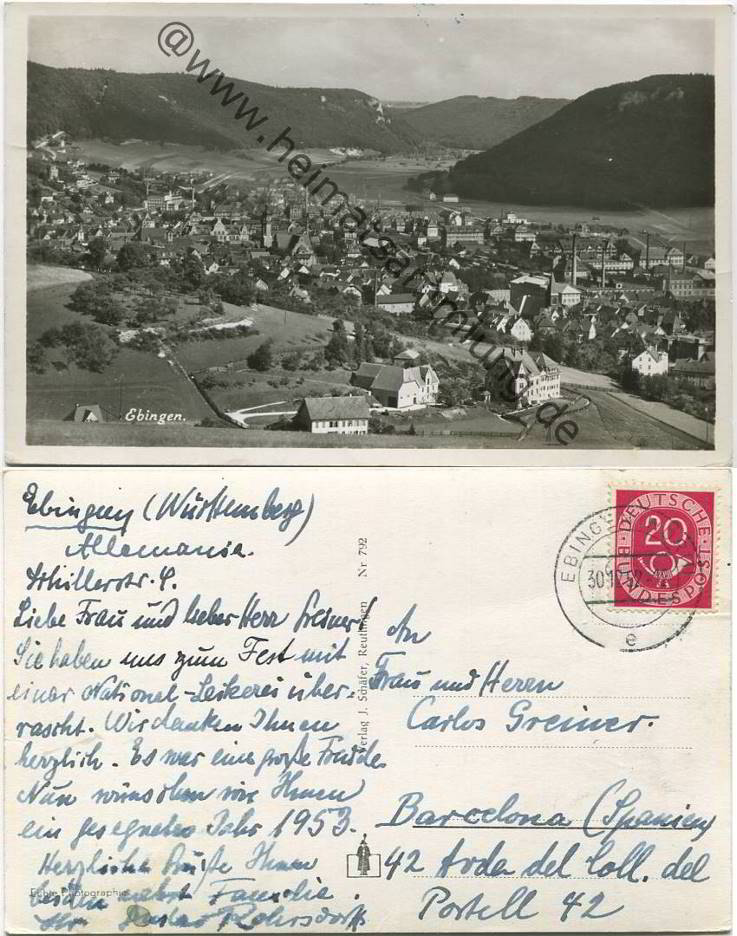 @www.heimatsammlung.de
Ebingen.
Ebingen (Württemberg)
Allemania.
Schillerstr.
Liebe Frau und lieber Herr Greiner!
Sie haben uns zum Fest mit
einer National-Leckerei über-
rascht. Wir danken Ihnen
herzlich. Es war eine große Freude.
Nun wünschen wir Ihnen
ein gesegnetes Jahr 1953.
Herzliche Grüße Ihnen
beiden nebst Familie.
Ihr
Echte Photographie
Verlag J. Schäfer, Reutlingen Nr 792
DEUTSCHE
20
BUNDESPOST
EBINGEN
30.12.
e
An
Frau und Herrn
Carlos Greiner.
Barcelona (Spanien)
42 Avda del Coll. del
Portell 42